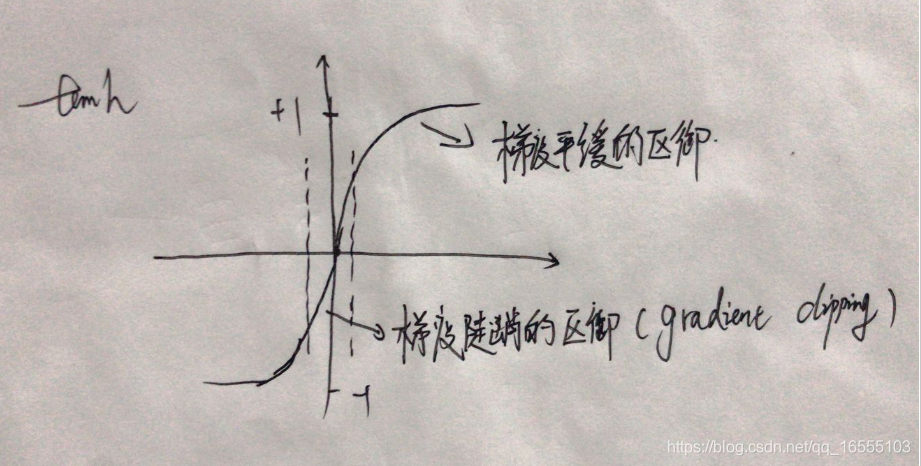 tanh
+1
梯度平缓的区御.
梯度陡峭的区御(gradient clipping)
-1
https://blog.csdn.net/qq_16555103